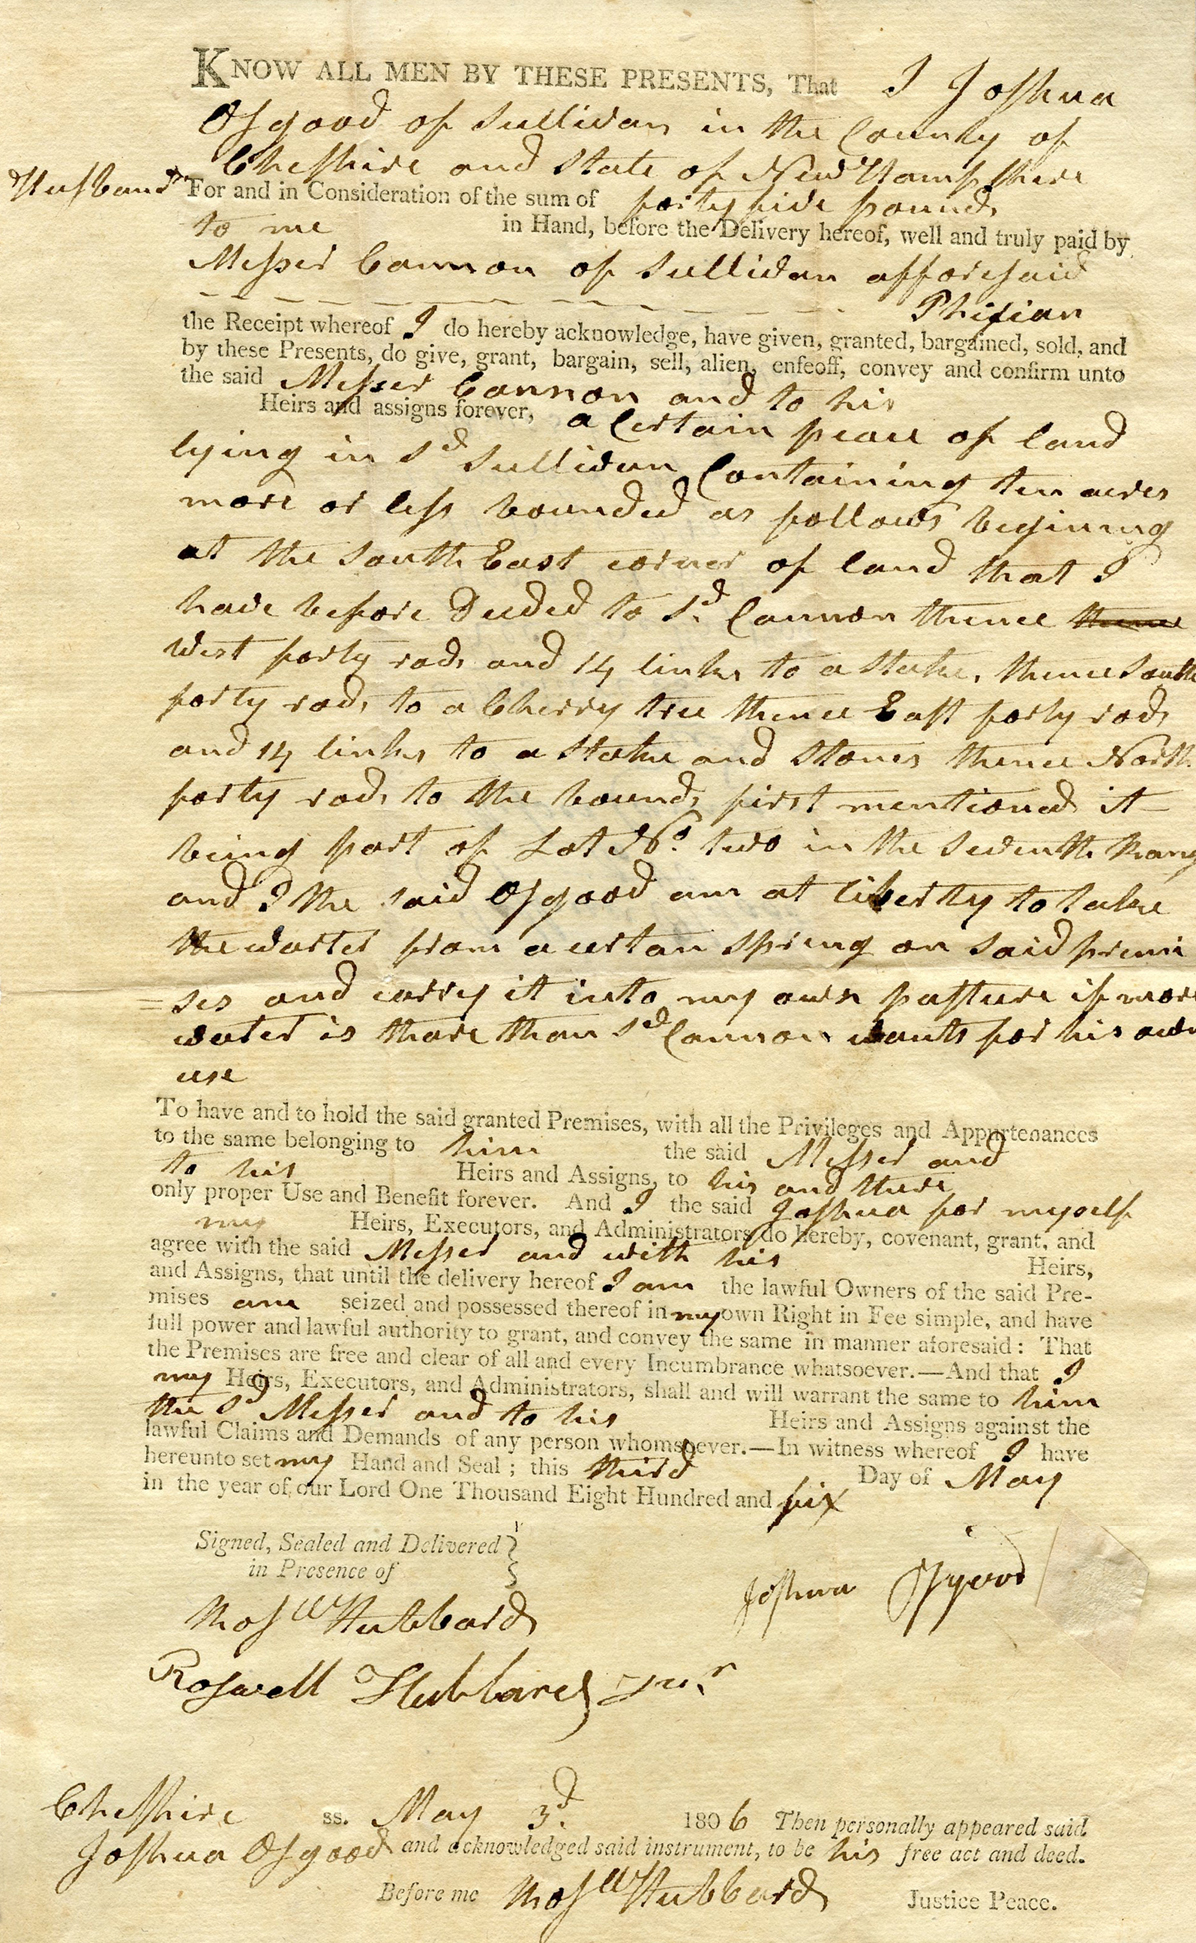 KNOW ALL MEN BY THESE PRESENTS, That I Joshua
Osgood of Sullivan in the County of
Cheshire and State of New Hampshire
Husband
For and in Consideration of the sum of forty five pounds
to me in Hand, before the Delivery hereof, well and truly paid by
Messer Cannon of Sullivan afforesaid
Phisian
the Receipt whereof I do hereby acknowledge, have given, granted, bargained, sold, and
by these Presents, do give, grant, bargain, sell, alien, enfeoff, convey and confirm unto
the said Messer Cannon and to his
Heirs and assigns forever, a Certain peace of land
lying in Sd Sullivan Containing ten acres
more or less bounded as follows begining
at the South East corner of land that I
have before Deeded to Sd. Cannon thence thence
West forty rods and 14 links to a stake, thence South
forty rods to a Cherry tree thence East forty rods
and 14 links to a Stake and Stones thence North
forty rods to the bounds first mentioned it
being part of Lot No. two in the Seventh Rang
and I the said Osgood am at liberty to take
the warter from a certan spring on said premi
=ses and carry it into my own pasture if more
water is thare than Sd Cannon wants for his own
use
To have and to hold the said granted Premises, with all the Privileges and Appurtenances
to the same belonging to him the said Messer and
to his Heirs and Assigns, to his and there
only proper Use and Benefit forever. And I the said Joshua for myself
my Heirs, Executors, and Administrators do hereby, covenant, grant, and
agree with the said Messer and with his Heirs,
and Assigns, that until the delivery hereof I am the lawful Owners of the said Pre-
mises am seized and possessed thereof in my own Right in Fee simple, and have
full power and lawful authority to grant, and convey the same in manner aforesaid: That
the Premises are free and clear of all and every Incumbrance whatsoever.—And that I
my Heirs, Executors, and Administrators, shall and will warrant the same to him
the Sd Messer and to his Heirs and Assigns against the
lawful Claims and Demands of any person whomsoever.—In witness whereof I have
hereunto set my Hand and Seal; this third Day of May
in the year of our Lord One Thousand Eight Hundred and six
Signed, Sealed and Delivered
in Presence of
Joshua Osgood
Rosll Hubbard
Roswell Hubbard Junr
Cheshire ss. May 3d. 1806 Then personally appeared said
Joshua Osgood and acknowledged said instrument, to be his free act and deed.
Before me Rosll Hubbard Justice Peace.